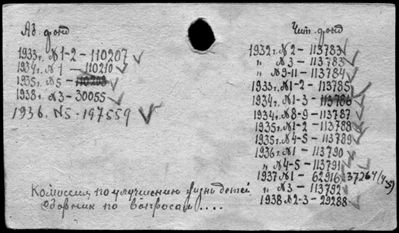 Аз. фонд
1933г. №1-2 - 110207
1934г. №1 - 110210
1935г. №5 -
1938г. №3 - 30055
1936. №5 - 197559
Чит. фонд
1932г. №2 - 113783
" №3 - 113783
" №9-11 - 113784
1933г. №1-2 - 113785
1934г. №1-3 - 113786
1934г. №8-9 - 113787
1935г. №1-2 - 113788
1935г. №4-5 - 113789
1936г. №1 - 113790
" №4-5 - 113791
1937 №1 - 62916
" №3 - 113792
1938 №2-3 - 29288
Комиссия по улучшению жизни детей
Сборник по вопросам....